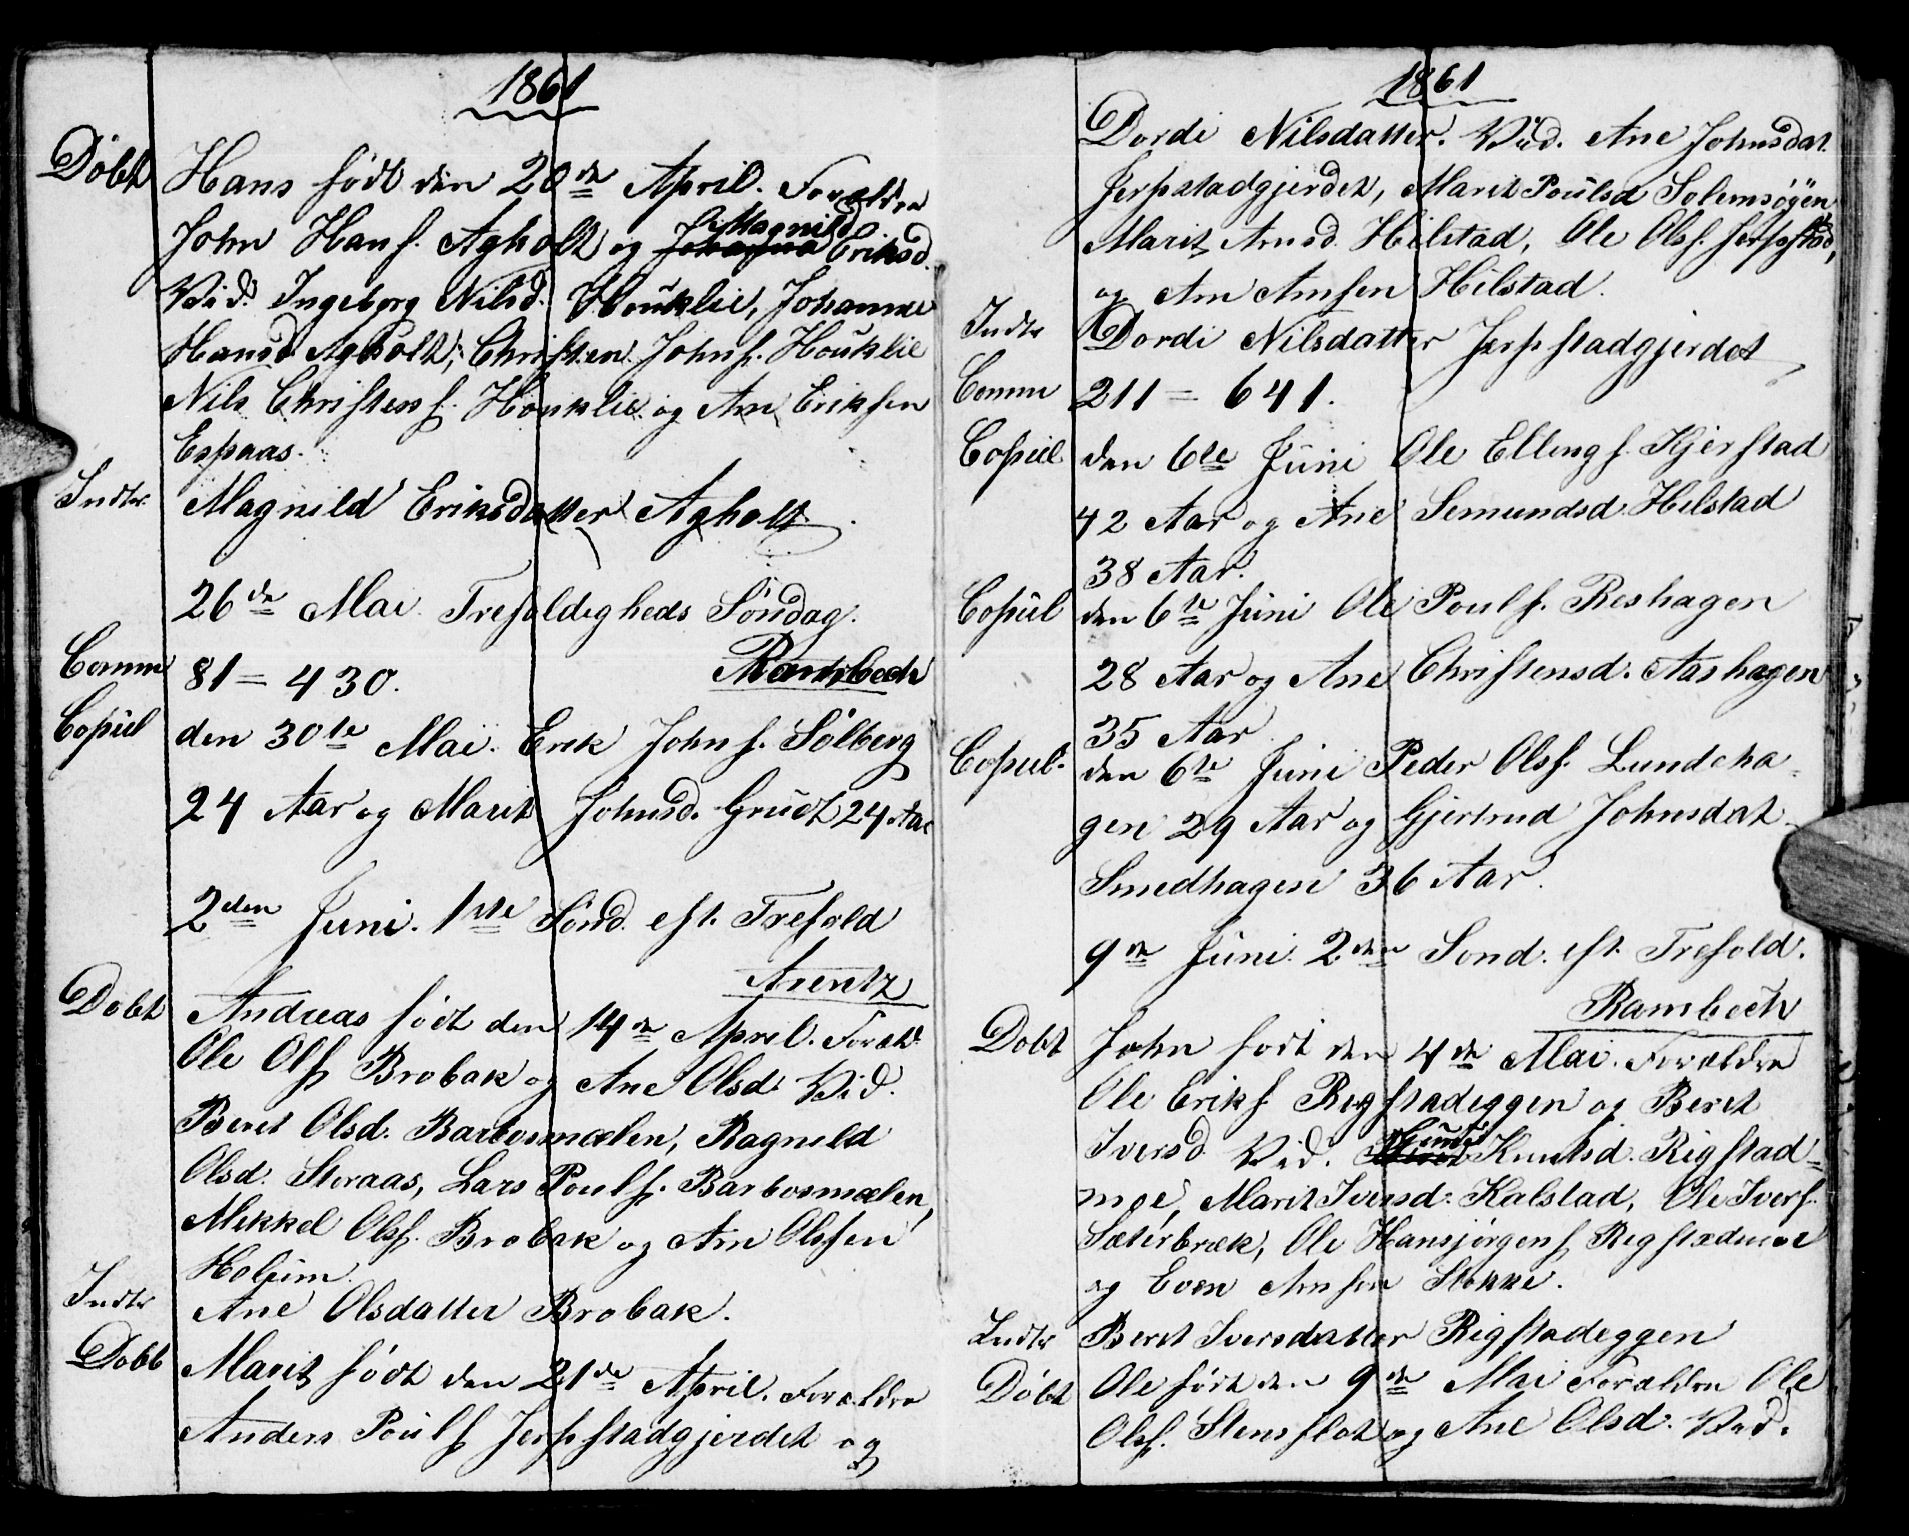 1861
Döbt Hans födt den 20de April. Forældre
John Hansf. Agholt og Magnild Eriksd.
Vid. Ingeborg Nilsd. Houklie, Johanne
Hansd Agholt, Christen Johnf. Houklie
Nils Christenf. Houklie og Arn Eriksen
Espaas.
Indtr. Magnild Eriksdatter Agholt.
26de Mai Trefoldigheds Söndag.
Rambech
Comm 81 = 430.
Copul den 30te Mai. Erik Johnf. Sölberg
24 Aar og Marit Johnsd. Grudt 24 Aar
2den Juni. 1ste Sönd. eft. Trefold
Arentz
Döbt Andreas födt den 14de April. Foræld
Ole Olsf Brobak og Ane Olsd. Vid.
Beret Olsd. Barbosmælen, Ragnild
Olsd. Storaas, Lars Poulf. Barbosmælen,
Mikkel Olsf. Brobak og Arn Olsen
Holeim.
Indtr Ane Olsdatter Brobak.
Döbt Marit födt den 21de April. Forældre
Anders Poulf Jerpstadgjerdet og
1861
Dordi Nilsdatter. Vid. Ane Johnsdat.
Jerpstadgjerdet, Marit Poulsd Solemsöyen
Marit Arnsd. Hilstad, Ole Olsf. Jerpstad,
og Arn Arnsen Hilstad.
Indtr Dordi Nilsdatter Jerpstadgjerdet
Comm 211 = 641.
Copul den 6te Juni Ole Ellingf. Kjerstad
42 Aar og Ane Semundsd. Hilstad
38 Aar.
Copul den 6te Juni Ole Poulf. Reshagen
28 Aar og Ane Christensd. Aashagen
35 Aar
Copul. den 6te Juni Peder Olsf. Lundeha-
gen 29 Aar og Gjertrud Johnsdat.
Smedhagen 36 Aar.
9de Juni. 2den Sond. eft. Trefold.
Rambech
Dobt John fodt den 4de Mai. Forældre
Ole Erikf Rigstadeggen og Beret
Iversd Vid. Knutsd. Rigstad=
moe, Marit Iversd. Kalstad, Ole Iverf.
Sæterbræk, Ole Hansjörgenf Rigstadmoe
og Even Arnsen Stokke.
Indtr Beret Iversdatter Rigstadeggen
Döbt Ole födt den 9de Mai Forældre Ole
Olsf. Stensflot og Ane Olsd. Vid.